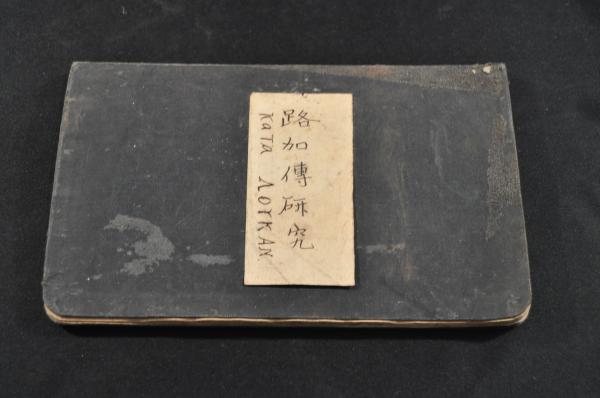 路加傳研究
ΚΑΤΑ ΛΟΥΚΑΝ